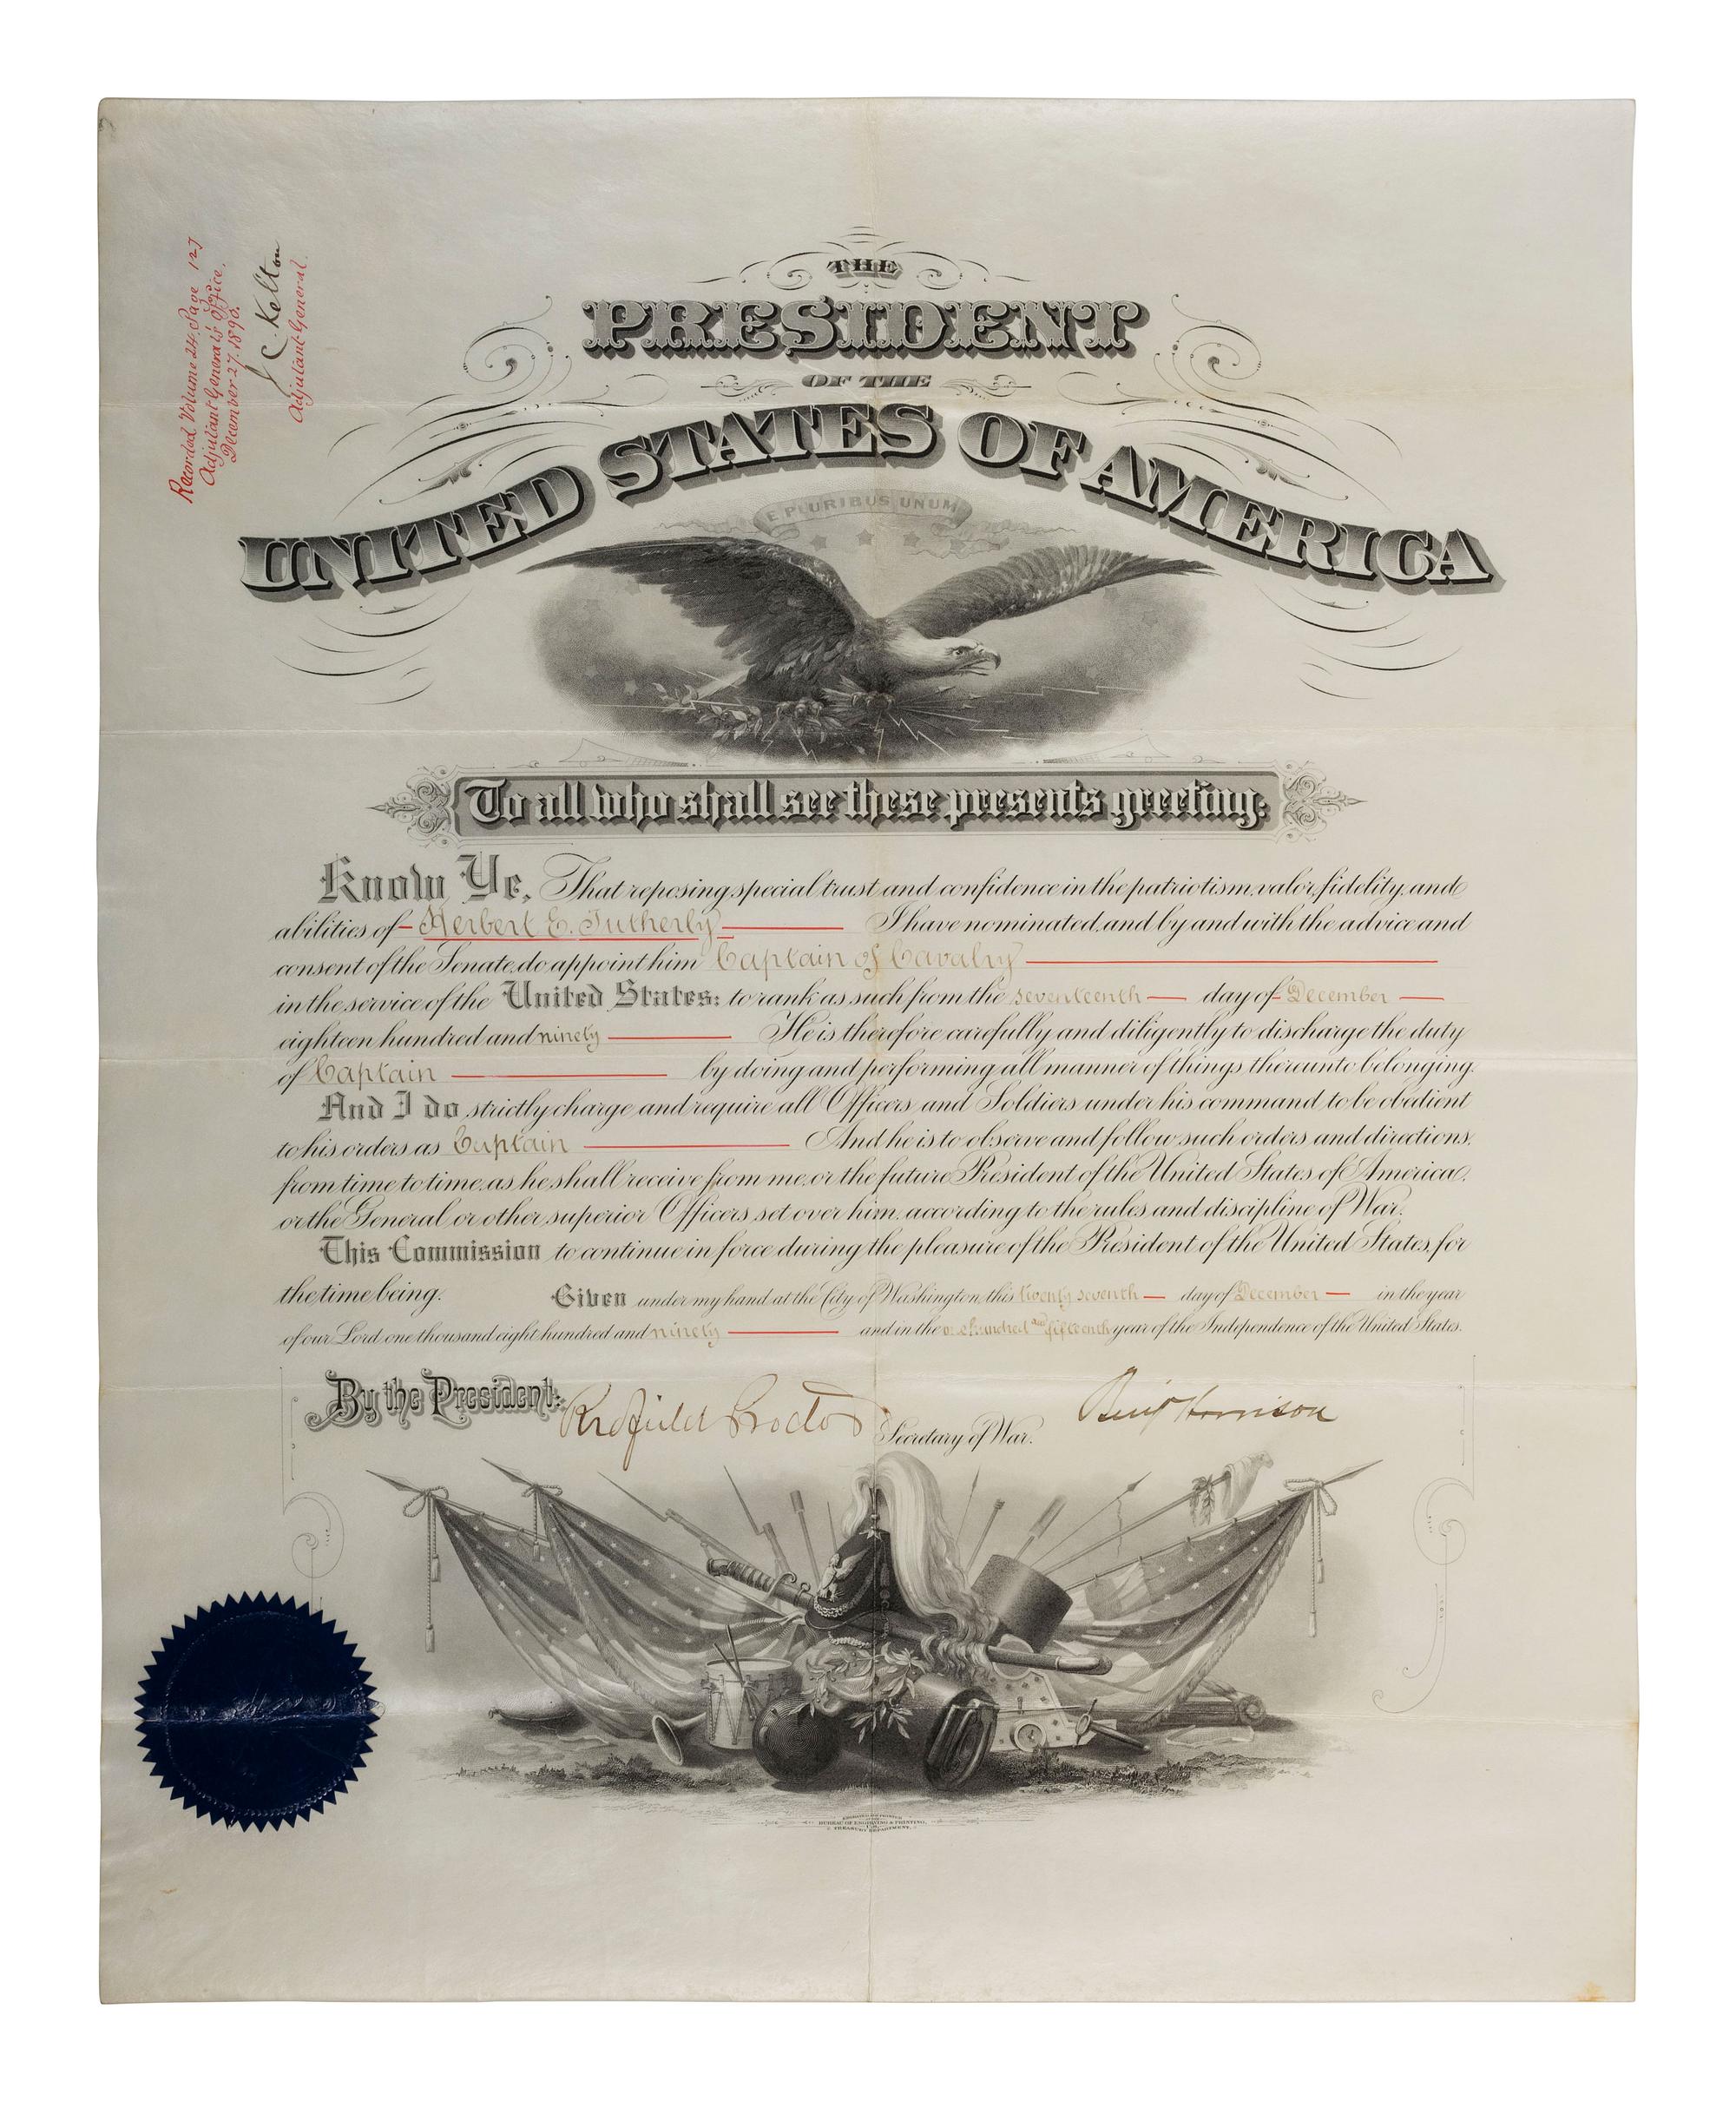 Recorded Volume 24, Page 127
Adjutant General's Office,
December 27, 1890.
J. C. Kelton
Adjutant General.
THE
PRESIDENT
OF THE
UNITED STATES OF AMERICA
E PLURIBUS UNUM
To all who shall see these presents greeting:
Know Ye, That reposing special trust and confidence in the patriotism, valor, fidelity, and
abilities of Herbert E. Tutherly I have nominated, and by and with the advice and
consent of the Senate, do appoint him Captain of Cavalry
in the service of the United States: to rank as such from the seventeenth day of December
eighteen hundred and ninety He is therefore carefully and diligently to discharge the duty
of Captain by doing and performing all manner of things thereunto belonging.
And I do strictly charge and require all Officers and Soldiers under his command to be obedient
to his orders as Captain And he is to observe and follow such orders and directions,
from time to time, as he shall receive from me, or the future President of the United States of America,
or the General or other superior Officers set over him, according to the rules and discipline of War.
This Commission to continue in force during the pleasure of the President of the United States, for
the time being. Given under my hand at the City of Washington, this twenty seventh day of December in the year
of our Lord one thousand eight hundred and ninety and in the one hundred and fifteenth year of the Independence of the United States.
By the President:
Redfield Proctor Secretary of War.
Benj Harrison
ENGRAVED AND PRINTED
AT THE
BUREAU OF ENGRAVING & PRINTING,
TREASURY DEPARTMENT.